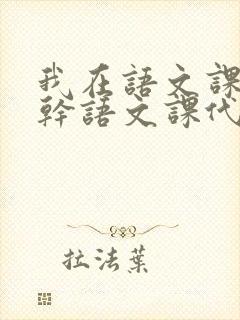 我在語文課
幹語文課代
拉法葉